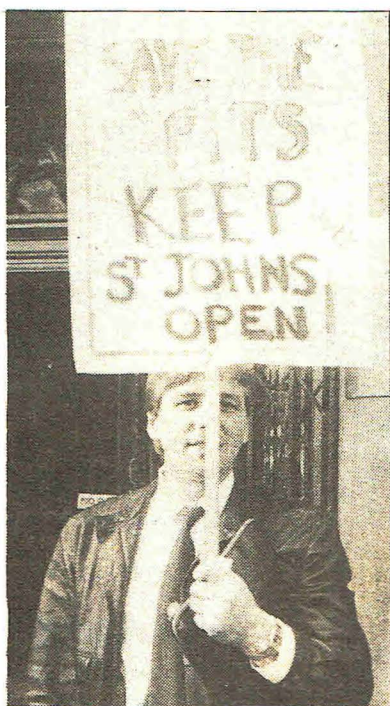 SAVE THE
PITS
KEEP
ST JOHNS
OPEN